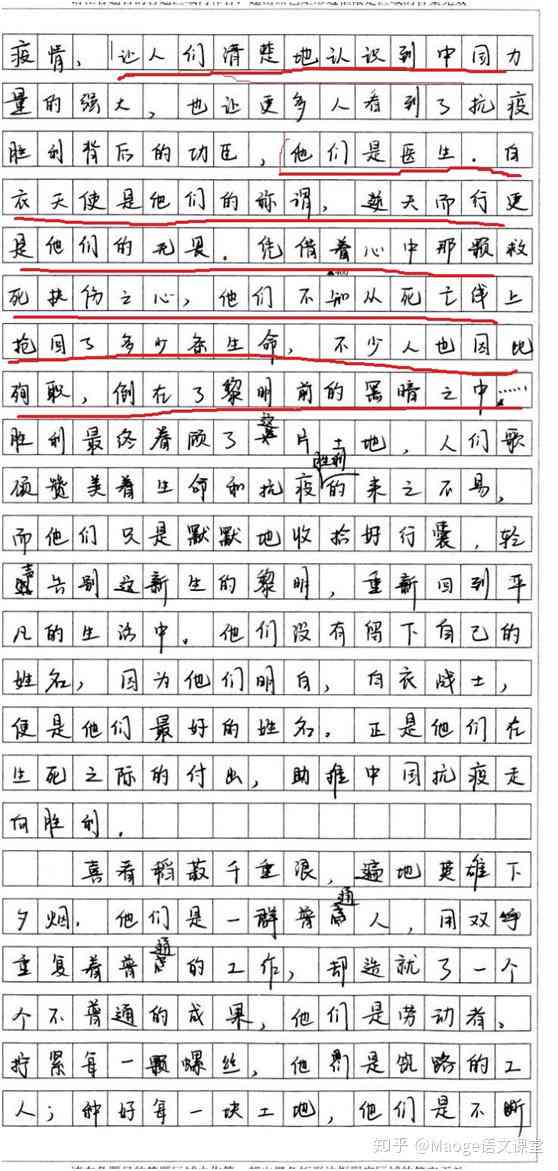 疫情，让人们清楚地认识到中国力
量的强大，也让更多人看到了抗疫
胜利背后的功臣，他们是医生．白
衣天使是他们的称谓，逆天而行更
是他们的无畏．凭借着心中那颗救
死扶伤之心，他们不知从死亡线上
抢回了多少条生命，不少人也因此
殉职，倒在了黎明前的黑暗之中……
胜利最终眷顾了这片土地，人们歌
颂赞美着生命和抗疫胜利的来之不易，
而他们只是默默地收拾好行囊，轻
声告别这新生的黎明，重新回到平
凡的生活中．他们没有留下自己的
姓名，因为他们明白，白衣战士，
便是他们最好的姓名．正是他们在
生死之际的付出，助推中国抗疫走
向胜利．
喜看稻菽千重浪，遍地英雄下
夕烟．他们是一群普通人，用双手
重复着普通的工作，却造就了一个
个不普通的成果，他们是劳动者。
拧紧每一颗螺丝，他们是筑路的工
人；种好每一块土地，他们是不断
知乎 @Maoge语文课堂